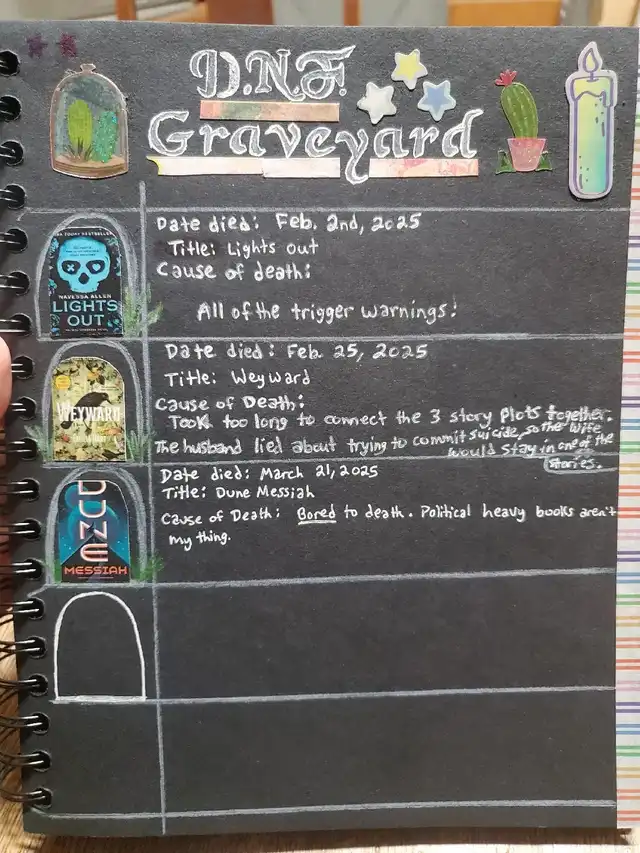 D.N.F.
Graveyard
Date died: Feb. 2nd, 2025
Title: Lights out
Cause of death:
All of the trigger warnings!
NAVESSA ALLEN
LIGHTS
OUT
Date died: Feb. 25, 2025
Title: Weyward
Cause of Death:
Took too long to connect the 3 story plots together.
The husband lied about trying to commit suicide, so the wife
would stay in one of the
stories.
WEYWARD
Date died: March 21, 2025
Title: Dune Messiah
Cause of Death: Bored to death. Political heavy books aren't
my thing.
DUNE
MESSIAH